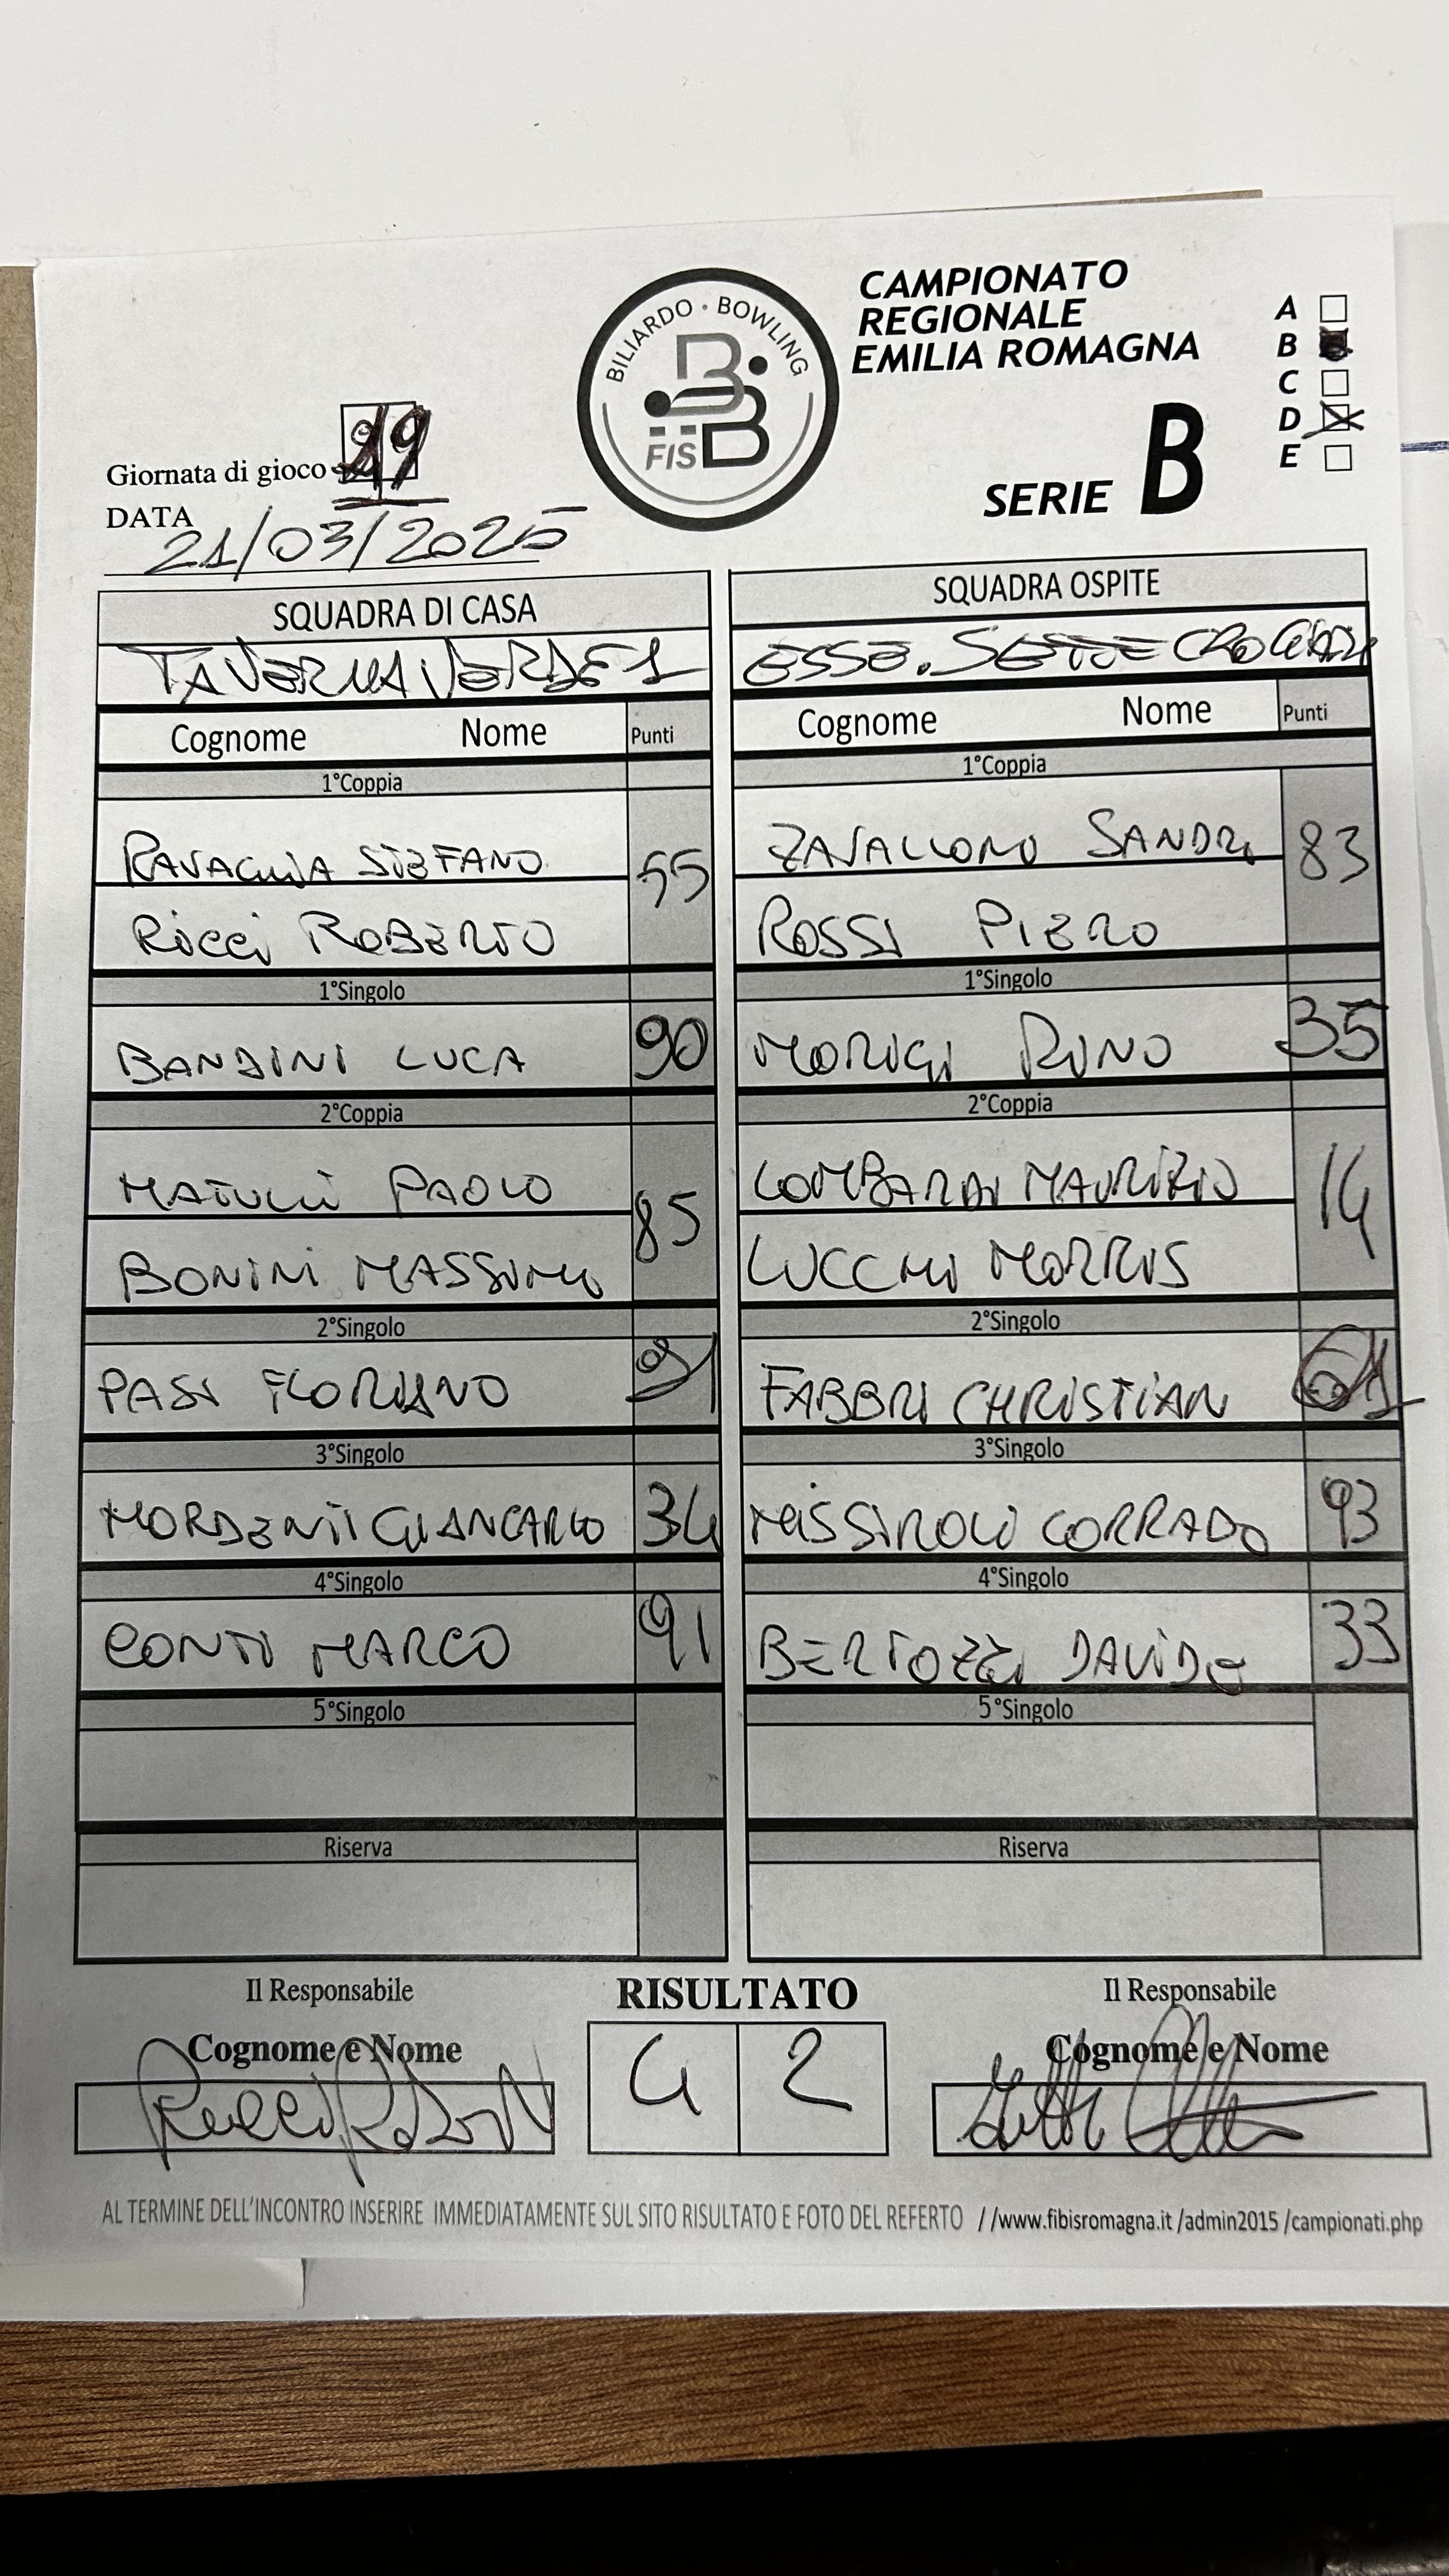 BILIARDO · BOWLING
FISBB
CAMPIONATO
REGIONALE
EMILIA ROMAGNA
A
B
C
D
E
SERIE B
Giornata di gioco 19
DATA
21/03/2025
SQUADRA DI CASA
TAVERNA VERDE 1
Cognome Nome Punti
1°Coppia
RAVAGLIA STEFANO 55
RICCI ROBERTO
1°Singolo
BANDINI LUCA 90
2°Coppia
MATULLI PAOLO 85
BONINI MASSIMO
2°Singolo
PASI FLORIANO 91
3°Singolo
MORDENTI GIANCARLO 34
4°Singolo
CONTI MARCO 91
5°Singolo
Riserva
SQUADRA OSPITE
ESSE. SETTE CROCIARI
Cognome Nome Punti
1°Coppia
ZAVALLONI SANDRO 83
ROSSI PIERO
1°Singolo
MORIGI RINO 35
2°Coppia
LOMBARDI MAURIZIO 14
LUCCHI MORRIS
2°Singolo
FABBRI CHRISTIAN 61
3°Singolo
MISSIROLI CORRADO 93
4°Singolo
BERTOZZI DAVIDE 33
5°Singolo
Riserva
Il Responsabile
Cognome e Nome
Ricci
RISULTATO
4 2
Il Responsabile
Cognome e Nome
AL TERMINE DELL'INCONTRO INSERIRE IMMEDIATAMENTE SUL SITO RISULTATO E FOTO DEL REFERTO //www.fibisromagna.it /admin2015 /campionati.php